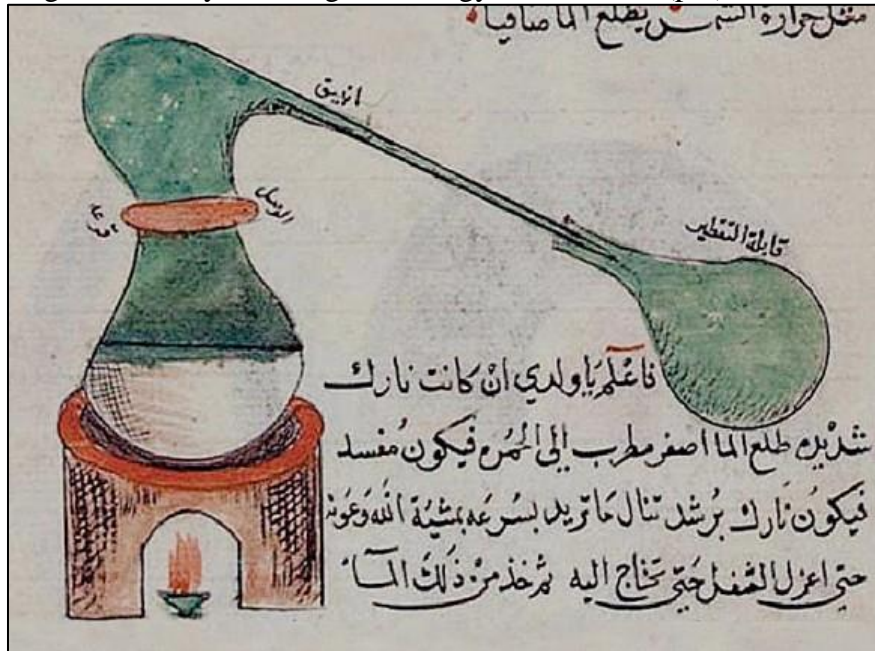 مثل حرارة الشمس يطلع الما صافيا
انبيق
الوصل
قرعه
قابلة التقطير
فاعلم يا ولدي ان كانت نارك
شديده طلع الما اصفر مطرب الى الحمره فيكون مفسد
فيكون نارك برشد تنال ما تريد بسرعه بمشية الله وعونه
حتى اعزل الثفل حتى تحتاج اليه ثم خذ من ذلك المآء